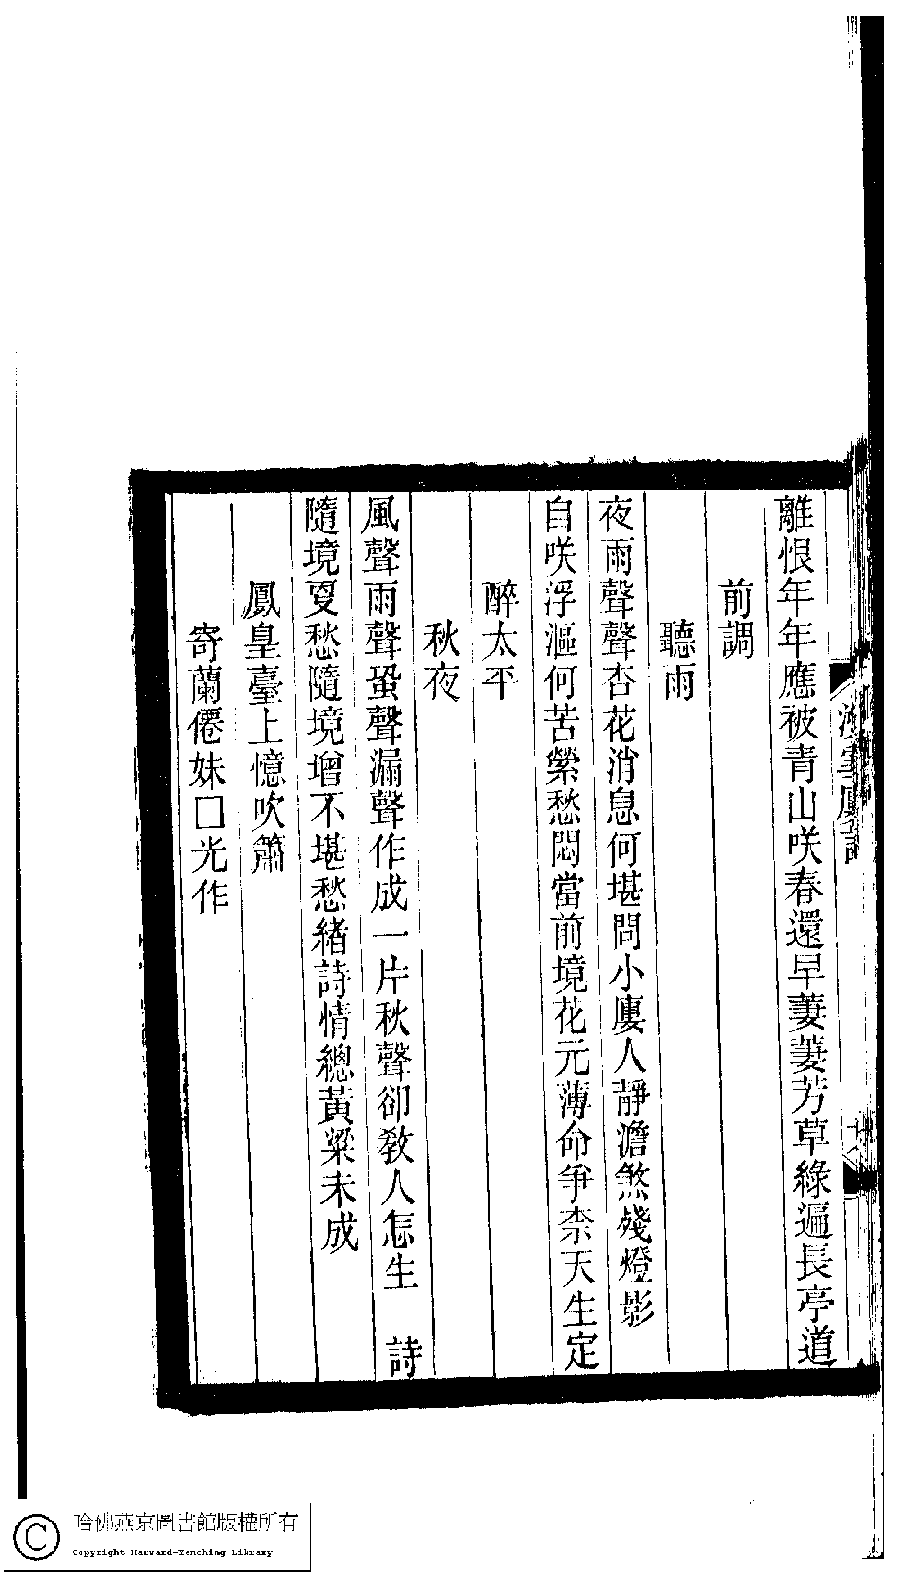 離恨年年應被青山咲春還早萋萋芳草綠遍長亭道
前調
聽雨
夜雨聲聲杏花消息何堪問小廔人靜澹煞殘燈影
自咲浮漚何苦縈愁悶當前境花元薄命爭柰天生定
醉太平
秋夜
風聲雨聲蛩聲漏聲作成一片秋聲卻敎人怎生　詩
隨境叓愁隨境增不堪愁緒詩情總黃粱未成
鳳皇臺上憶吹簫
寄蘭僊妹囗光作
哈佛燕京圖書館版權所有
Copyright Harvard-Yenching Library